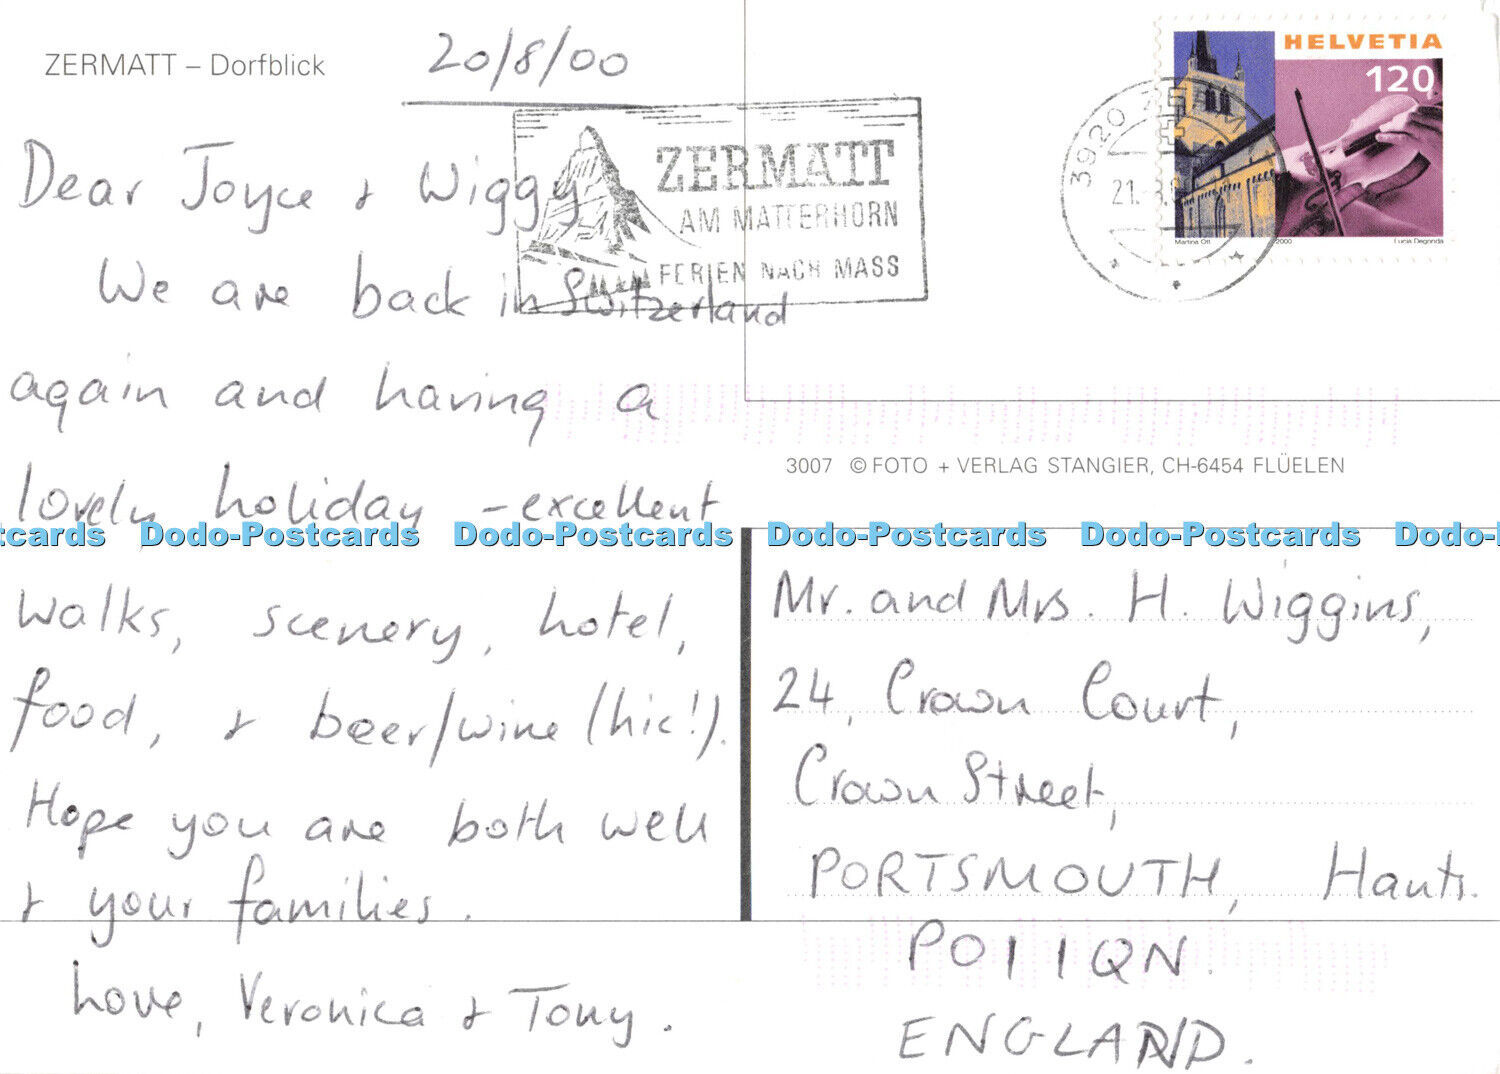 ZERMATT – Dorfblick
20/8/00
Dear Joyce + Wiggy
We are back in Switzerland
again and having a
lovely holiday – excellent
walks, scenery, hotel,
food, + beer/wine (hic!).
Hope you are both well
+ your families.
Love, Veronica + Tony.
ZERMATT
AM MATTERHORN
FERIEN NACH MASS
3920
21. 8.
HELVETIA
120
Martina Ott 2000 Lucia Degonda
3007 © FOTO + VERLAG STANGIER, CH-6454 FLÜELEN
tcards Dodo-Postcards Dodo-Postcards Dodo-Postcards Dodo-Postcards Dodo-
Mr. and Mrs. H. Wiggins,
24, Crown Court,
Crown Street,
PORTSMOUTH, Hants.
PO1 1QN.
ENGLAND.